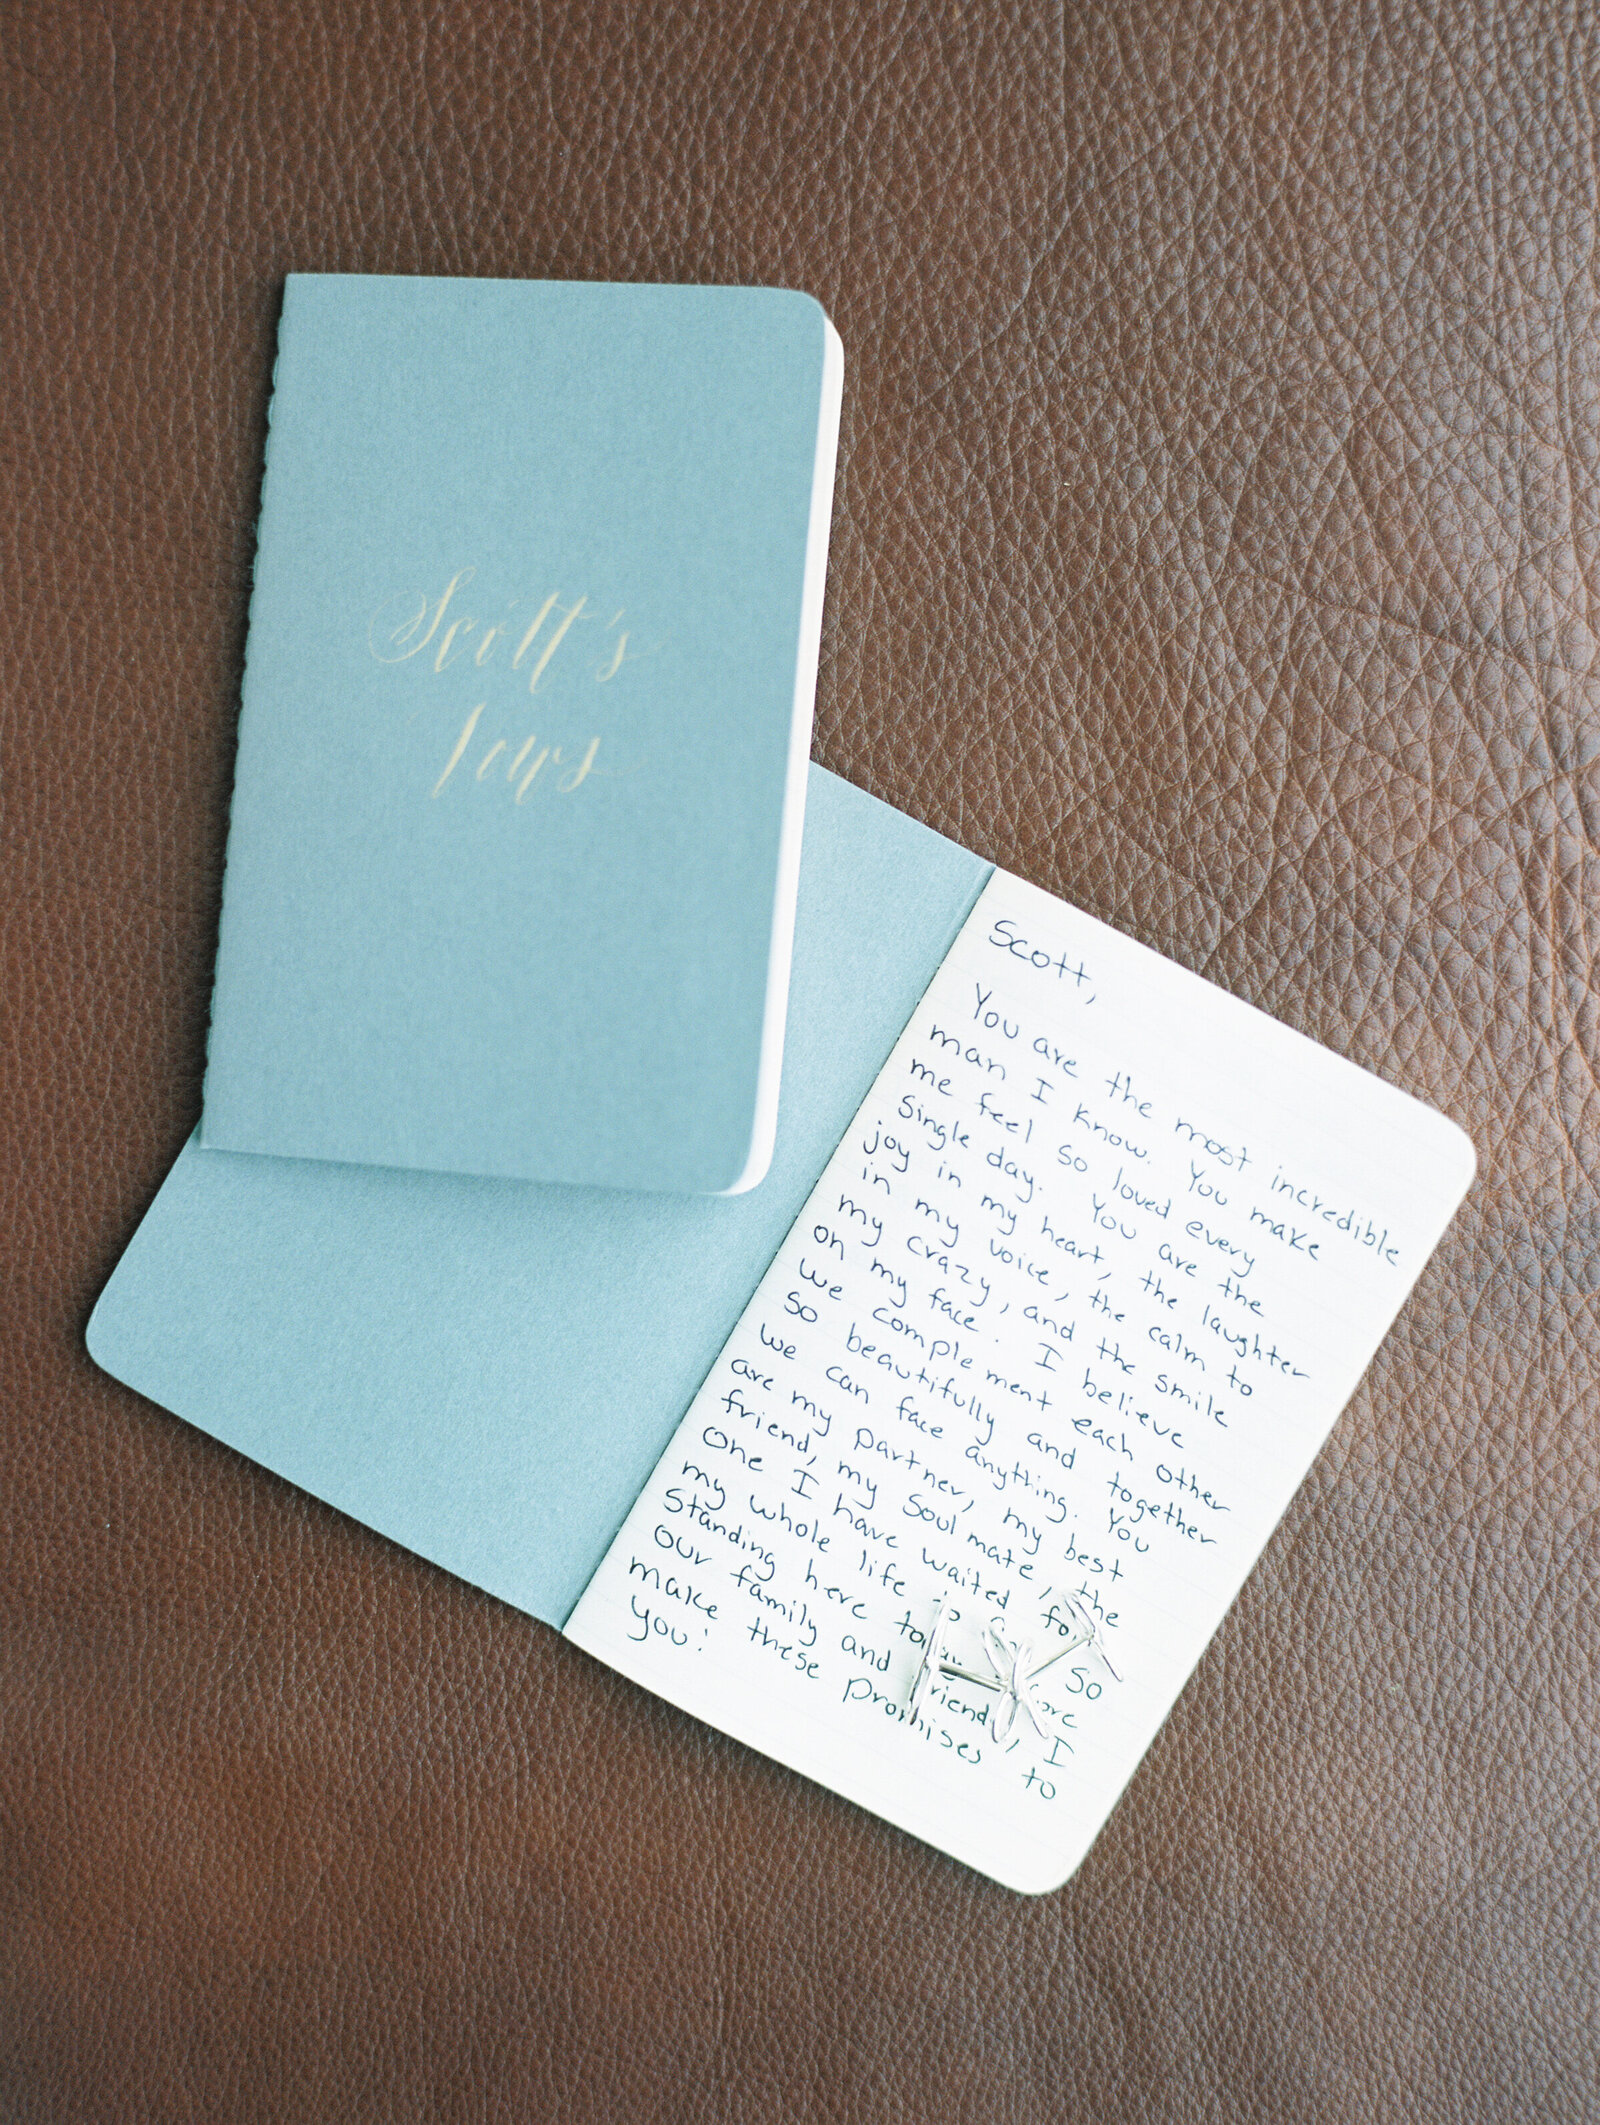 Scott's
Vows
Scott,
You are the most incredible
man I know. You make
me feel so loved every
single day. You are the
joy in my heart, the laughter
in my voice, the calm to
my crazy, and the smile
on my face. I believe
we complement each other
so beautifully and together
we can face anything. You
are my partner, my best
friend, my soul mate, the
one I have waited for
my whole life So
standing here
our family and friends, I
make these promises to
you: